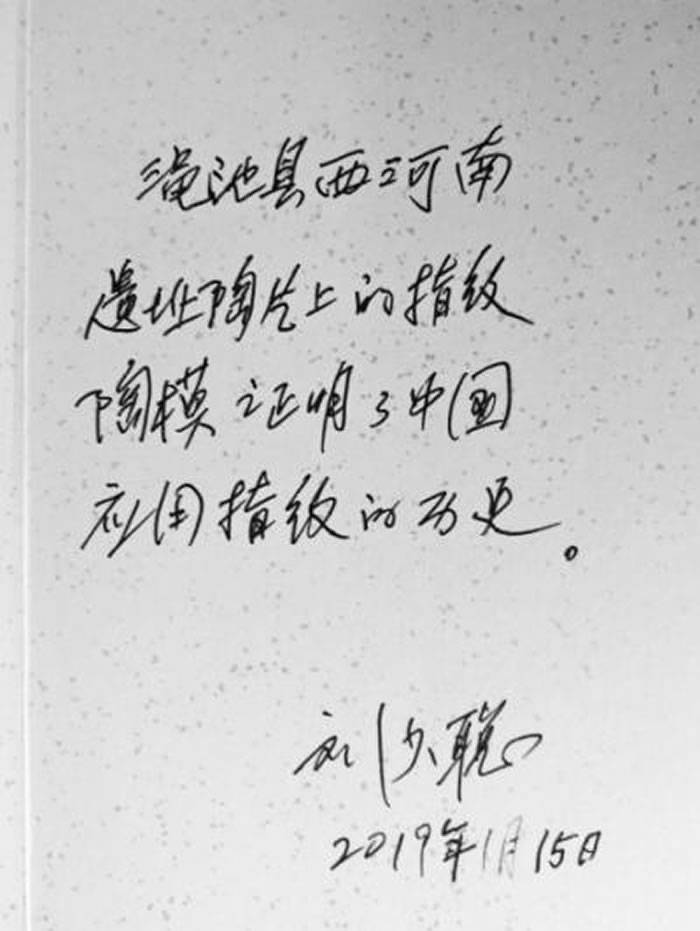 渑池县西河南
遗址陶片上的指纹
陶模证明了中国
应用指纹的历史。
刘少聪
2019年1月15日